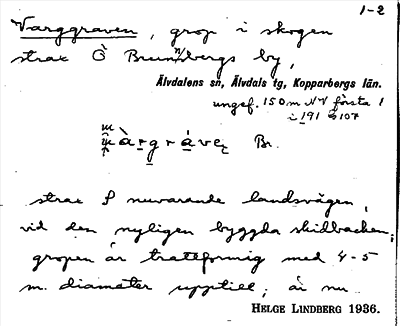 1-2
Varggraven, grop i skogen
strax Ö Brunnbergs by,
Älvdalens sn, Älvdals tg, Kopparbergs län.
ungef. 150 m NV första 1
i 191 ö 107
àrgráve Br.
strax S nuvarande landsvägen,
vid den nyligen byggda skidbacken;
gropen är trattformig med 4-5
m. diameter upptill; är nu
HELGE LINDBERG 1936.